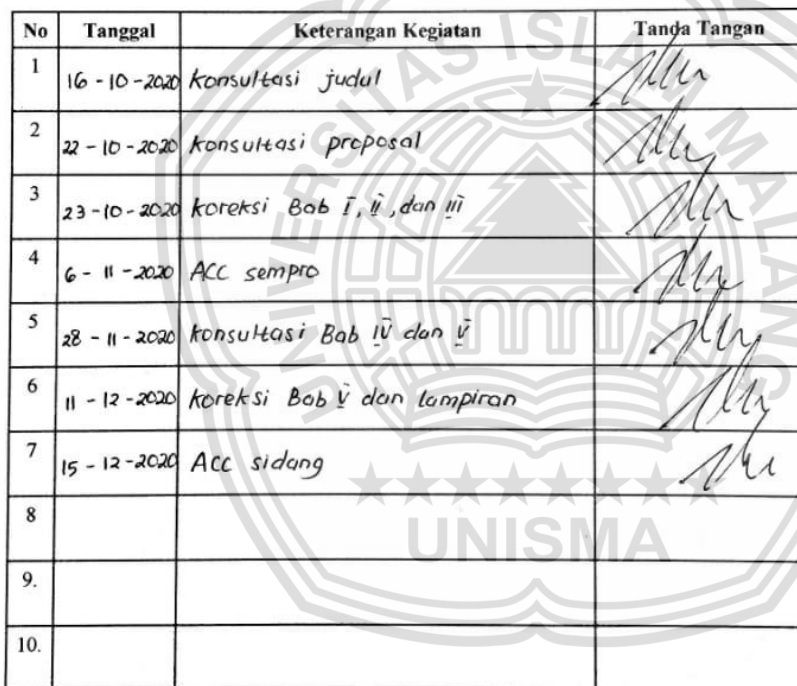 No Tanggal Keterangan Kegiatan Tanda Tangan
1 16 - 10 - 2020 konsultasi judul
2 22 - 10 - 2020 konsultasi proposal
3 23 - 10 - 2020 koreksi Bab I, II, dan III
4 6 - 11 - 2020 ACC sempro
5 28 - 11 - 2020 konsultasi Bab IV dan V
6 11 - 12 - 2020 koreksi Bab V dan lampiran
7 15 - 12 - 2020 ACC sidang
8
9.
10.
UNIVERSITAS ISLAM MALANG
UNISMA